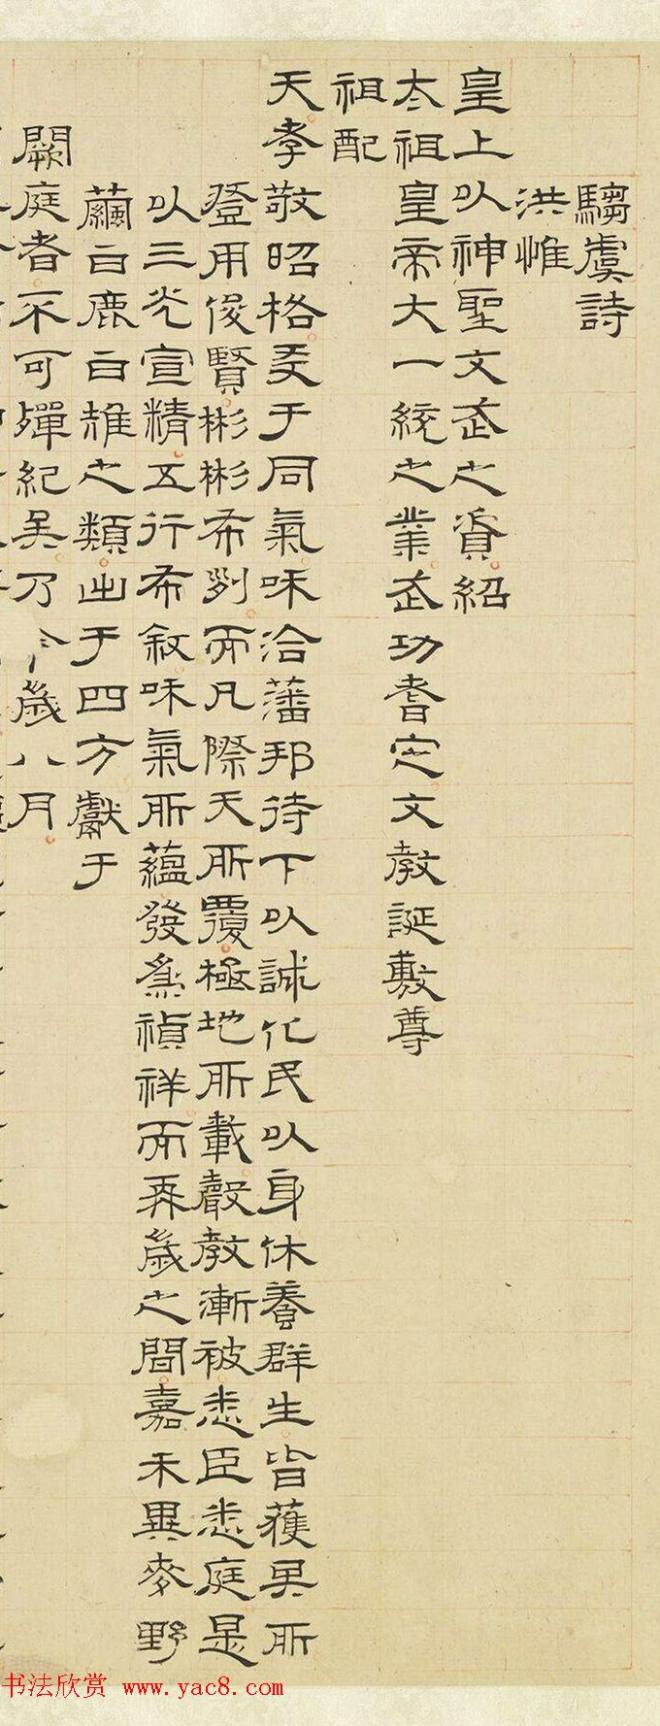 騶虞詩
洪惟
皇上以神聖文武之資紹
太祖皇帝大一統之業武功耆定文教誕敷尊
祖配
天孝敬昭格友于同氣咊洽藩邦待下以誠化民以身休養群生皆獲其所
登用俊賢彬彬布列而凡際天所覆極地所載聲教漸被悉臣悉庭是
以三光宣精五行布敘咊氣所蘊發為禎祥而再歲之間嘉禾異麥野
繭白鹿白雉之類出于四方獻于
闕庭者不可殫紀其乃今歲八月
书法欣赏 www.yac8.com